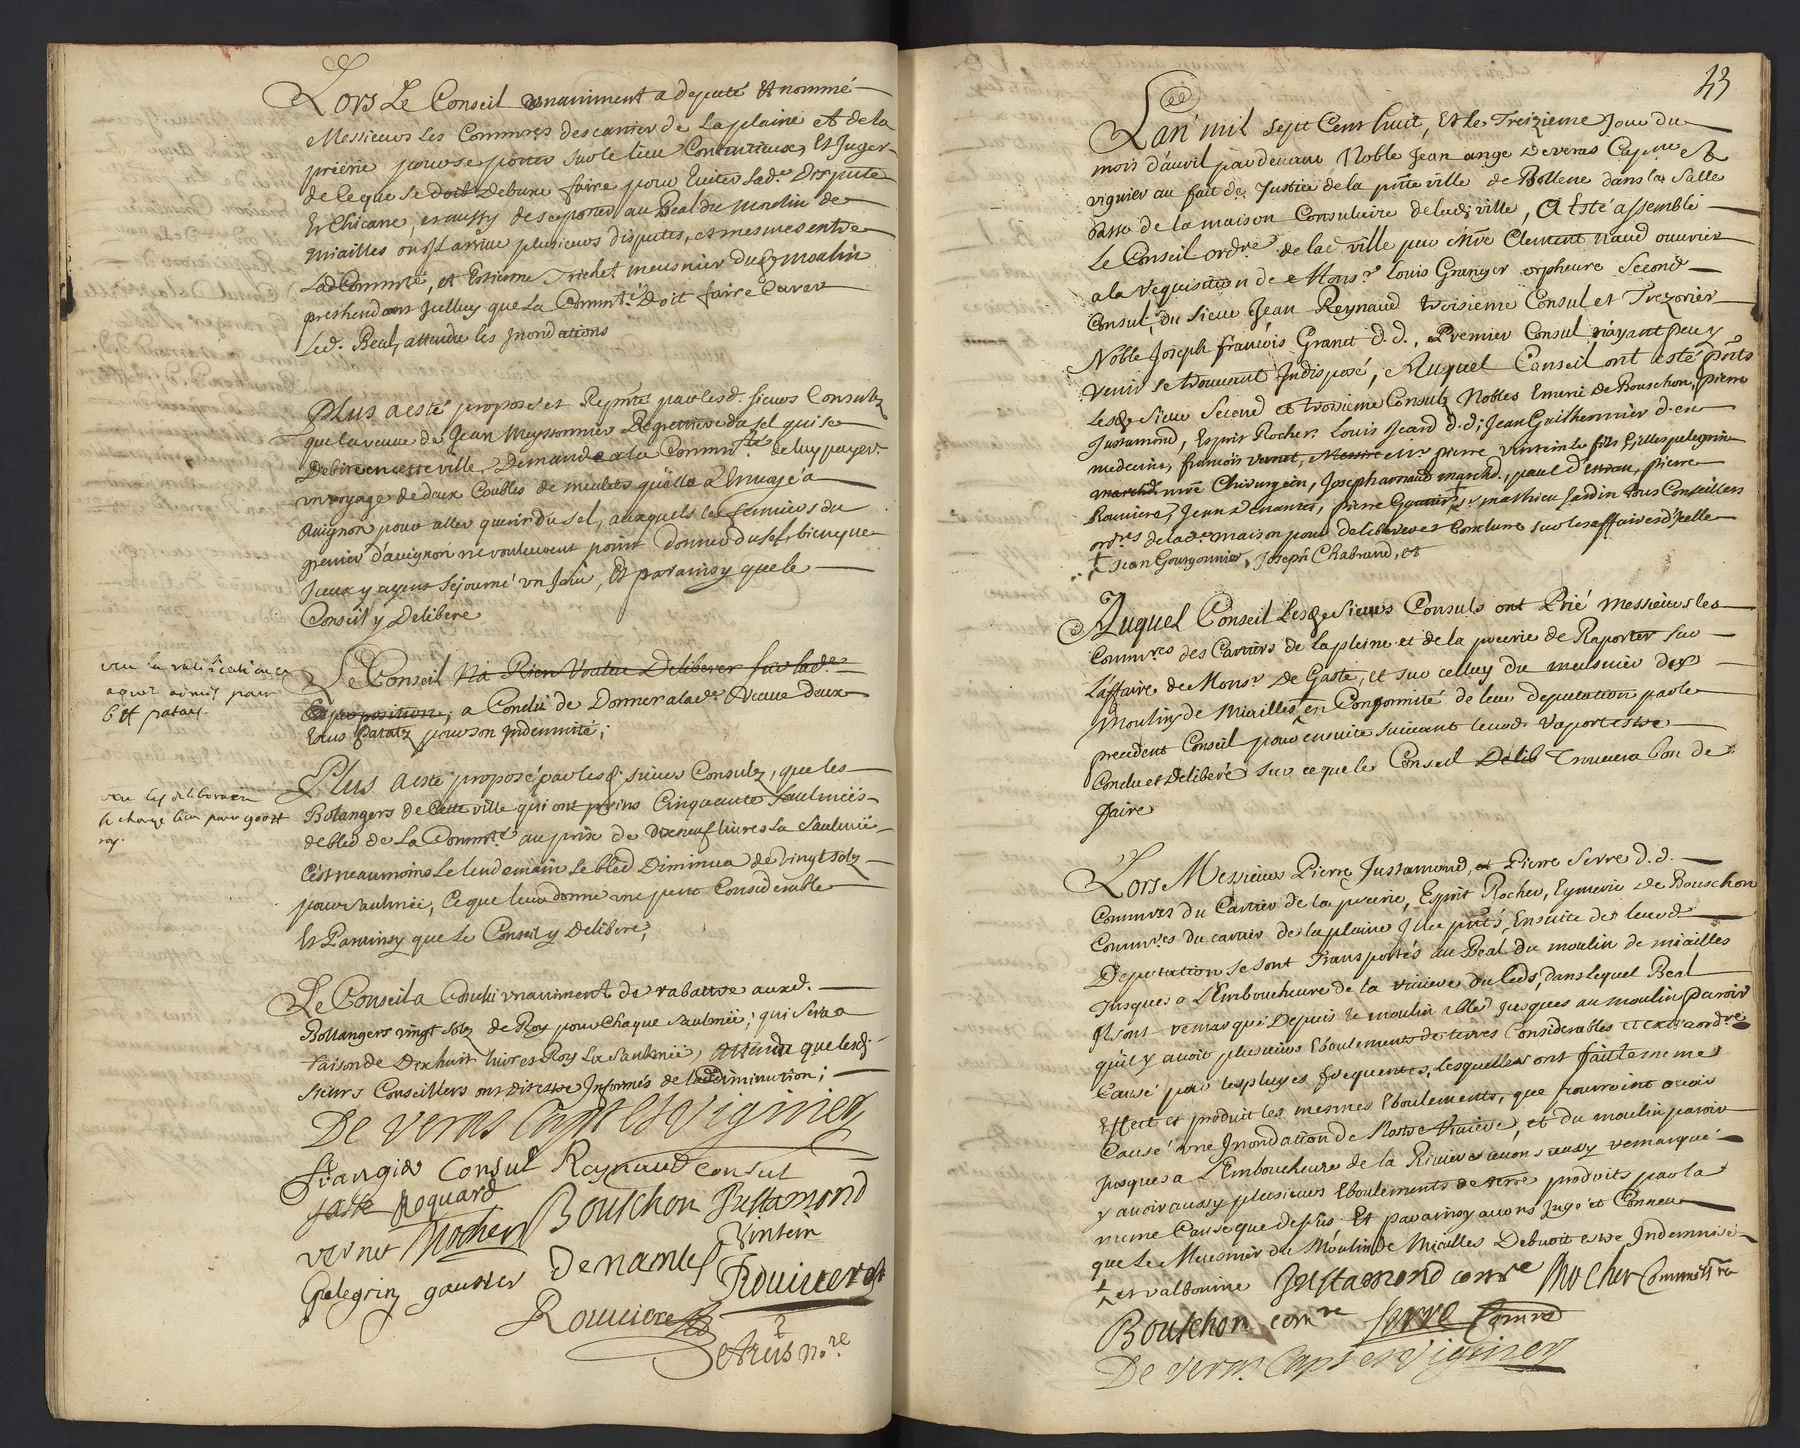 Lors Le Conseil unanimment a deputé et nommé
Messieurs Les Commres des cartier de La plaine et de la
prierie pour se porter sur le lieu Contentieux, Et Juger
de Ce que se doit Debura faire pour Eviter lade Dispute
Et Chicane, et aussy de se porter au Béal du Moulin de
miailles ou est arrivé plusieurs disputes, et mesmes entre
Lad Commté, et Estienne Trichet meusnier dud moulin
prethendant Jcelluy que La Commté Doit faire Curer
Led. Béal, attendu les Jnondations
Plus a esté proposé et Represté par lesd. sieurs Consulz
que la veuve de Jean Meyssonnier Regrettiere du sel qui se
Debite en cette ville, Demande a la Commté de luy payer
un voyage de deux Coubles de mulets quelle a Envoyé a
Avignon pour aller querir du sel, auxquels les fermiers du
grenier d'avignon ne voulurent point Donner du sel, bien que
Jceux y ayent séjourné un Jour, Et par ainsy que le
Conseil y Delibere
Le Conseil Na Rien Voulu Deliberer sur lade
proposition, a Conclu de Donner a lade Veuve deux
Escus patatz pour son Jndemnité;
Plus a esté proposé par lesd. sieurs Consulz, que les
Bolangers de Cette ville qui ont prins Cinquante saulmées
de bled de La Commté au prix de Dixneuf livres La Saulmée
C'est neaumoins Le lendemain Le bled Diminua de vingt solz
pour saulmée, Ce que leur donne une perte Considerable
Et Parainsy que Le Conseil y Delibere;
Le Conseil a Conclu unaniment de rabattre auxd.
Bollangers vingt solz de Roy pour Chaque saulmée; qui sera a
raison de Dixhuit livres Roy La saulmée, attendu que lesd
sieurs Conseillers ont Esté Informés de lad Diminution;
De veras Capne Et Viginer
Grangier Consul Raynaud consul
Gaste Roquard
Bouschon Justamond
Vernet Rocher Vintein
Pelegrin gautier Denantes Rouviere
Rouviere
De Areis nore
veu la ratification en
aquit admis pour
6 ff patas.
veu les deliberaon
le charge lieu pour 900 ff
roy.
43
L'an mil Sept Cent huit, Et Le Treizieme Jour du
mois d'auril pardevant Noble Jean ange Deveras Capne et
viguier au fait de Justice de la pnte ville de Bollene dans la Salle
basse de la maison Consulaire de lad ville, A Esté assemblé
Le Conseil ordre de lad ville par Clement naud ouvrier
a la requisition de Monsr Louis Granger orpheure Second
Consul, du Sieur Jean Reynaud troisieme Consul et Trezorier
Noble Joseph francois Granet d. d., Premier Consul n'ayant peu y
venir se trouvant Indisposé, Auquel Conseil ont esté pnts
Lesd Sieur Second et troisieme Consulz Nobles Emeric de Bouschon, pierre
Justamond, Esprit Rocher Louis Jcard d. d; Jean Guilhermier d. en
medecine, francois vernet, Messire pierre vintein le fils Gilles pelegrin
marchd Chirurgien, Joseph arnaud marchd, paul d'ennau, pierre
Rouviere, Jean denantes, pierre gautier, mathieu Jardin tous Conseillers
ordres de lade maison pour deliberer et Conclure sur les affaires d'Jcelle
Jean Gourgonnier, Joseph Chabrand, et
Auquel Conseil Lesd Sieurs Consuls ont Prié Messieurs les
Commres des Cartiers de La pleine et de la prierie de Raporter sur
L'affaire de Monsr De Gaste, et sur celluy du meusnier du
Moulin de Miailles en Conformité de leur deputation par le
precedent Conseil pour ensuite suivant leurd raport estre
Conclu et deliberé sur ce que le Conseil Delib Trouvera bon de
faire
Lors Messieurs Pierre Justamond, et Pierre Serre d. d.
Commres du Cartier de la prierie, Esprit Rocher, Eymeric de Bouschon
Commres du cartier de la plaine Jcy pnts, Ensuite de leurd
Deputation se sont Transportés au Béal du moulin de miailles
Jusques a L'Emboucheure de la riviere du Leds, dans lequel Béal
Jl ont remarqué Depuis le moulin abled Jusques au moulin paroir
quil y avoit plusieurs Eboulements de terres Considerables et extraordre
Causé par les pluyes frequentes, lesquelles ont fait le mesme
Effect et produit les mesmes Eboulements, que pourroint avoir
Causé une Jnondation de Nostre Riviere, et du moulin paroir
Jusques a L'Emboucheure de la Riviere avons aussy remarqué
y avoir aussy plusieurs Eboulements de terre produits par la
mesme Cause que depuis Et par ainsy avons Jugé et Conneu
que Le Meusnier du Moulin de Miailles Debvoit estre Indemnisé
et valbonne Justamond comre Rocher Commissre
Bouschon comre Serre Comre
De veras Capne et Viginer